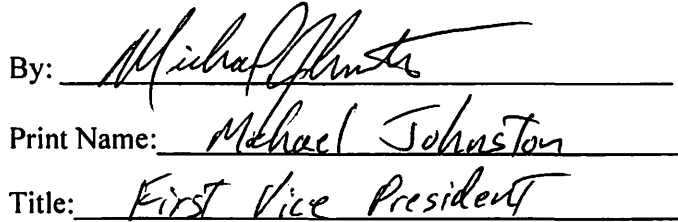 By: Michael Johnston
Print Name: Michael Johnston
Title: First Vice President